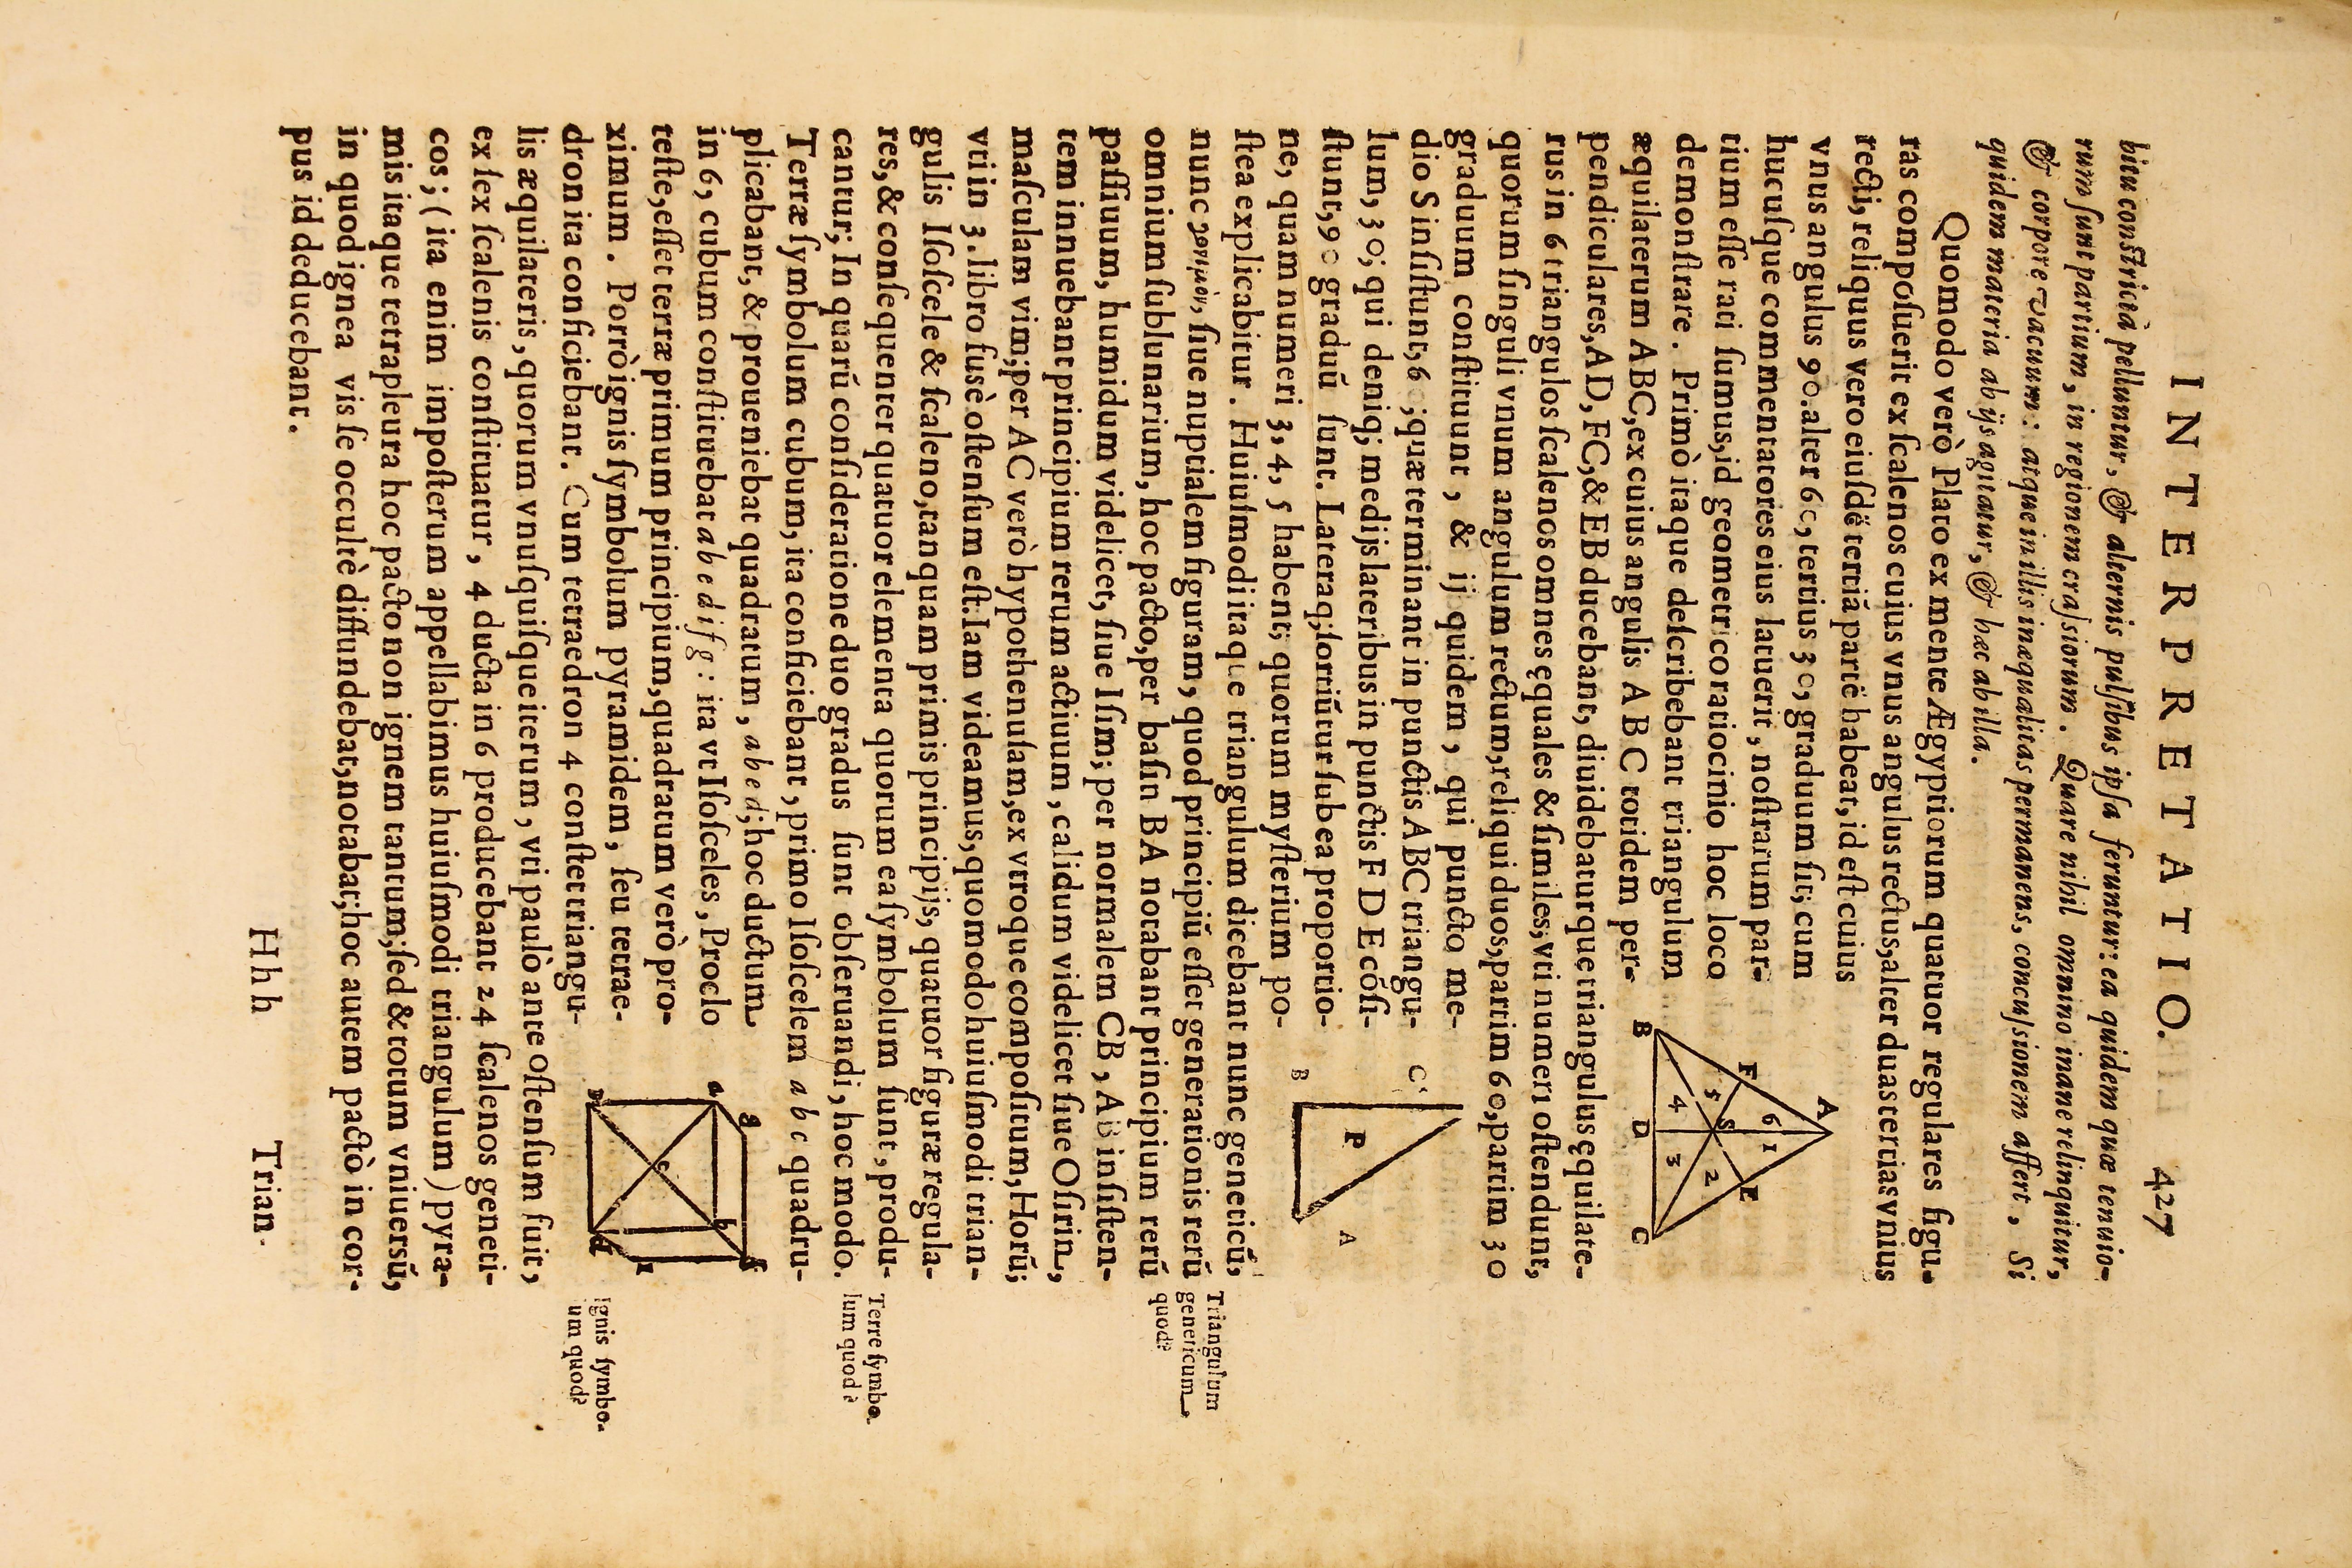 INTERPRETATIO. 427
bitu constricta pelluntur, & alternis pulsibus ipsa feruntur: ea quidem quæ tenuio-
rum sunt partium, in regionem crassiorum. Quare nihil omnino inane relinquitur,
& corpore vacuum: atque in illis inæqualitas permanens, concussionem affert. Si
quidem materia ab ijs agitatur, & hæc ab illa.
Quomodo verò Plato ex mente Ægyptiorum quatuor regulares figu-
ras composuerit ex scalenos cuius vnus angulus rectus, alter duas tertias vnius
recti, reliquus vero eiusdẽ tertiã partẽ habeat, id est cuius
vnus angulus 90. alter 60, tertius 30, graduum sit; cum
hucusque commentatores eius latuerit, nostrarum par-
tium esse rati sumus, id geometrico ratiocinio hoc loco
demonstrare. Primò itaque describebant triangulum
æquilaterum ABC, ex cuius angulis A B C totidem per-
pendiculares, AD, FC, & EB ducebant, diuidebaturque triangulus ęquilate-
rus in 6 triangulos scalenos omnes ęquales & similes; vti numeri ostendunt,
quorum singuli vnum angulum rectum, reliqui duos, partim 60, partim 30
graduum constituunt, & ij quidem, qui puncto me-
dio S insistunt, 60; quæ terminant in punctis ABC triangu-
lum, 30; qui deniq; medijs lateribus in punctis F D E cõsi-
stunt, 90 graduũ sunt. Lateraq; sortiũtur sub ea proportio-
ne, quam numeri 3, 4, 5 habent; quorum mysterium po-
stea explicabitur. Huiusmodi itaque triangulum dicebant nunc geneticũ,
nunc γονιμὸν, siue nuptialem figuram, quod principiũ esset generationis rerũ
omnium sublunarium, hoc pacto, per basin BA notabant principium rerũ
passiuum, humidum videlicet, siue Isim; per normalem CB, AB insisten-
tem innuebant principium rerum actiuum, calidum videlicet siue Osirin,
masculam vim; per AC verò hypothenusam, ex vtroque compositum, Horũ;
vti in 3. libro fusè ostensum est: Iam videamus, quomodo huiusmodi trian-
gulis Isoscele & scaleno, tanquam primis principijs, quatuor figuræ regula-
res, & consequenter quatuor elementa quorum ea symbolum sunt, produ-
cantur; In quarũ consideratione duo gradus sunt obseruandi, hoc modo.
Terræ symbolum cubum, ita conficiebant, primo Isoscelem abc quadru-
plicabant, & proueniebat quadratum, abed; hoc ductum
in 6, cubum constituebat abedifg: ita vt Isosceles, Proclo
teste, esset terræ primum principium, quadratum verò pro-
ximum. Porrò ignis symbolum pyramidem, seu tetrae-
dron ita conficiebant. Cum tetraedron 4 constet triangu-
lis æquilateris, quorum vnusquisque iterum, vti paulò ante ostensum fuit,
ex sex scalenis constituatur, 4 ducta in 6 producebant 24 scalenos geneti-
cos; (ita enim imposterum appellabimus huiusmodi triangulum) pyra-
mis itaque tetrapleura hoc pacto non ignem tantum; sed & totum vniuersũ,
in quod ignea vis se occultè diffundebat, notabat; hoc autem pactò in cor-
pus id deducebant.
Hhh Trian-
A
F 6 1 E
5 S 2
4 3
B D C
C
P
B A
a g
b f
c
e d i
Triangulum
geneticum
quod?
Terre symbo-
lum quod?
Ignis symbo-
um quod?